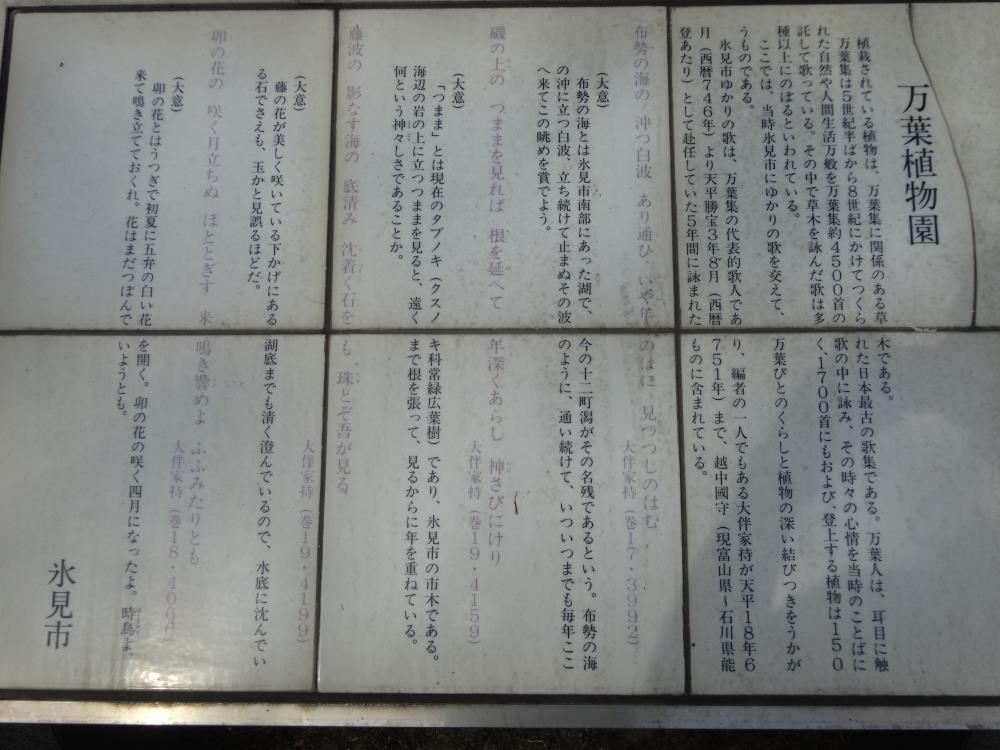 万葉植物園
植栽されている植物は、万葉集に関係のある草木である。
万葉集は5世紀半ばから8世紀にかけてつくられた日本最古の歌集である。万葉人は、耳目に触
れた自然や人間生活万般を万葉集約4500首の歌の中に詠み、その時々の心情を当時のことばに
託して歌っている。その中で草木を詠んだ歌は多く、1700首にもおよび、登上する植物は150
種以上にのぼるといわれている。
ここでは、当時氷見市にゆかりの歌を交えて、万葉びとのくらしと植物の深い結びつきをうかが
うものである。
氷見市ゆかりの歌は、万葉集の代表的歌人であり、編者の一人でもある大伴家持が天平18年6
月(西暦746年)より天平勝宝3年8月(西暦751年)まで、越中國守(現富山県〜石川県能
登あたり)として赴任していた5年間に詠まれたものに含まれている。
布勢の海の 沖つ白波 あり通ひ いや年のはに 見つつしのはむ
大伴家持(巻17・3992)
(大意)
布勢の海とは氷見市南部にあった湖で、今の十二町潟がその名残であるという。布勢の海
の沖に立つ白波、立ち続けて止まぬその波のように、通い続けて、いついつまでも毎年ここ
へ来てこの眺めを賞でよう。
磯の上の つままを見れば 根を延へて 年深くあらし 神さびにけり
大伴家持(巻19・4159)
(大意)
「つまま」とは現在のタブノキ(クスノキ科常緑広葉樹)であり、氷見市の市木である。
海辺の岩の上に立つつままを見ると、遠くまで根を張って、見るからに年を重ねている。
何という神々しさであることか。
藤波の 影なす海の 底清み 沈着く石をも 珠とぞ吾が見る
大伴家持(巻19・4199)
(大意)
藤の花が美しく咲いている下かげにある湖底までも清く澄んでいるので、水底に沈んでい
る石でさえも、玉かと見誤るほどだ。
卯の花の 咲く月立ちぬ ほととぎす 来鳴き響めよ ふふみたりとも
大伴家持(巻18・4066)
(大意)
卯の花とはうつぎで初夏に五弁の白い花を開く。卯の花の咲く四月になったよ。時鳥よ、
来て鳴き立てておくれ。花はまだつぼんでいようとも。
氷見市